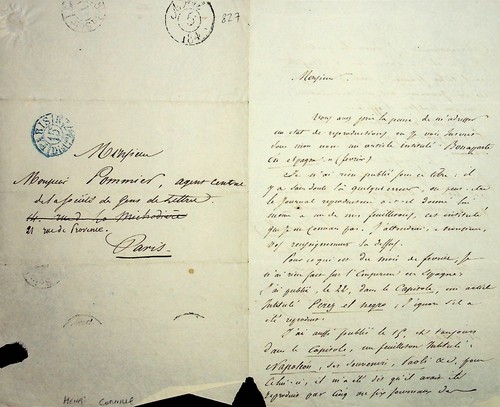 827
5
184
PARIS
15
Monsieur
Monsieur Pommier, agent central
de la société des gens de lettres
21 rue de Provence.
Paris.
HENRI
Monsieur
Vous avez pris la peine de m'adresser
un état de reproductions où je vois inscrit
sous mon nom un article intitulé Bonaparte
en espagne. (février)
Je n'ai rien publié sous ce titre; il
y a sans doute là quelque erreur, ou peut-être
le journal reproducteur a-t-il donné lui
même à un de mes feuilletons, cet intitulé
que je ne connais pas. J'attendrai, monsieur,
des renseignements là dessus.
Pour ce qui est du mois de février, je
n'ai rien fait sur l'Empereur en Espagne;
j'ai publié, le 22, dans le Capitole, un article
intitulé Perez el negro, j'ignore s'il a
été reproduit.
J'ai aussi publié le 15, et toujours
dans le Capitole, un feuilleton intitulé:
Napoléon, ses souvenirs, Paoli &a, pour
celui-ci, il m'a été dit qu'il avait été
reproduit par cinq ou six journaux de